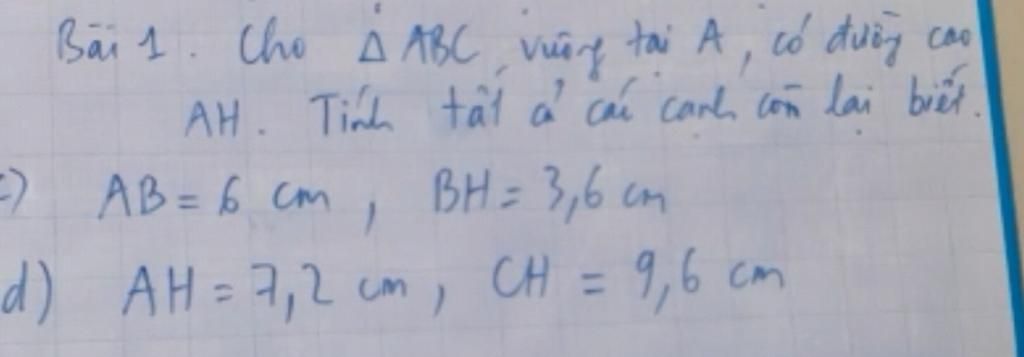 Bài 1. Cho Δ ABC vuông tại A, có đường cao
AH. Tính tất cả các cạnh còn lại biết.
c) AB = 6 cm, BH = 3,6 cm
d) AH = 7,2 cm, CH = 9,6 cm